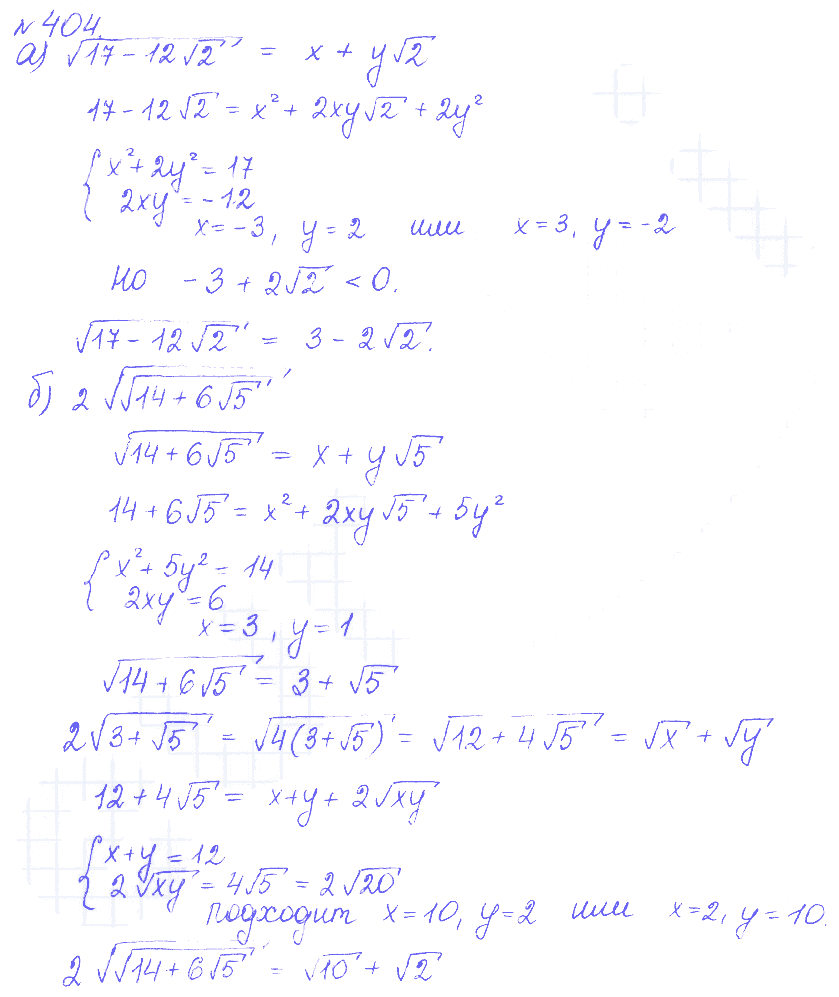 № 404.
а) √(17 - 12√2) = x + y√2
17 - 12√2 = x² + 2xy√2 + 2y²
{ x² + 2y² = 17
2xy = -12
x = -3, y = 2 или x = 3, y = -2
Но -3 + 2√2 < 0.
√(17 - 12√2) = 3 - 2√2.
б) 2√(√(14 + 6√5))
√(14 + 6√5) = x + y√5
14 + 6√5 = x² + 2xy√5 + 5y²
{ x² + 5y² = 14
2xy = 6
x = 3, y = 1
√(14 + 6√5) = 3 + √5
2√(3 + √5) = √(4(3 + √5)) = √(12 + 4√5) = √x + √y
12 + 4√5 = x + y + 2√(xy)
{ x + y = 12
2√(xy) = 4√5 = 2√20
подходит x = 10, y = 2 или x = 2, y = 10.
2√(√(14 + 6√5)) = √10 + √2